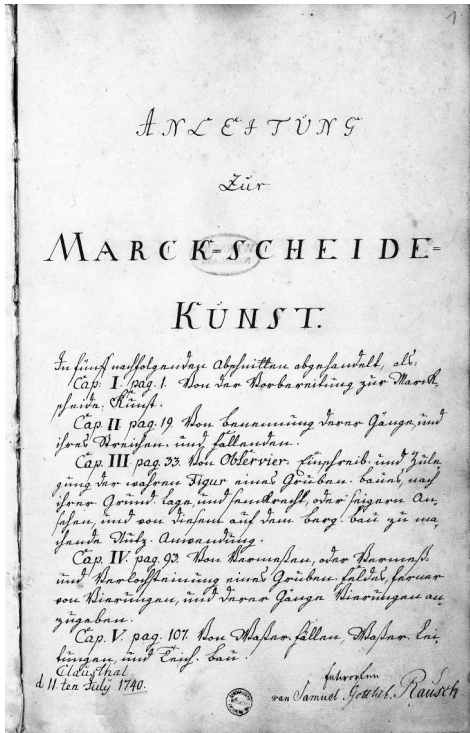 1
ANLEITUNG
Zur
MARCK-SCHEIDE-
KUNST.
In fünff nachfolgenden Abschnitten abgehandelt, als:
Cap: I. pag. 1. Von der Vorbereitung zur Marck-
scheide-Kunst.
Cap. II pag. 19. Von benennung derer Gänge, und
ihres Streichen- und fallenden.
Cap. III. pag. 33. Von Observier- Einschreib- und Zule
gung der wahren Figur eines Gruben-baues, nach
ihrer Grund-lage, und senkrecht, oder seigern An-
sehen, und von diesem auf dem berg-bau zu ma
chende Nutz-Anwendung.
Cap. IV. pag. 93. Von Vermeßen, oder Vermeß-
und Verlochsteinung eines Gruben-feldes, ferner
von Vierungen, und derer Gänge Vierungen an-
zugeben.
Cap. V. pag. 107. Von Waßer-fällen, Waßer-lei-
tungen, und Teich-bau.
Clausthal
d. 11ten July 1740.
entworfen
von Samuel Gottlieb Rausch